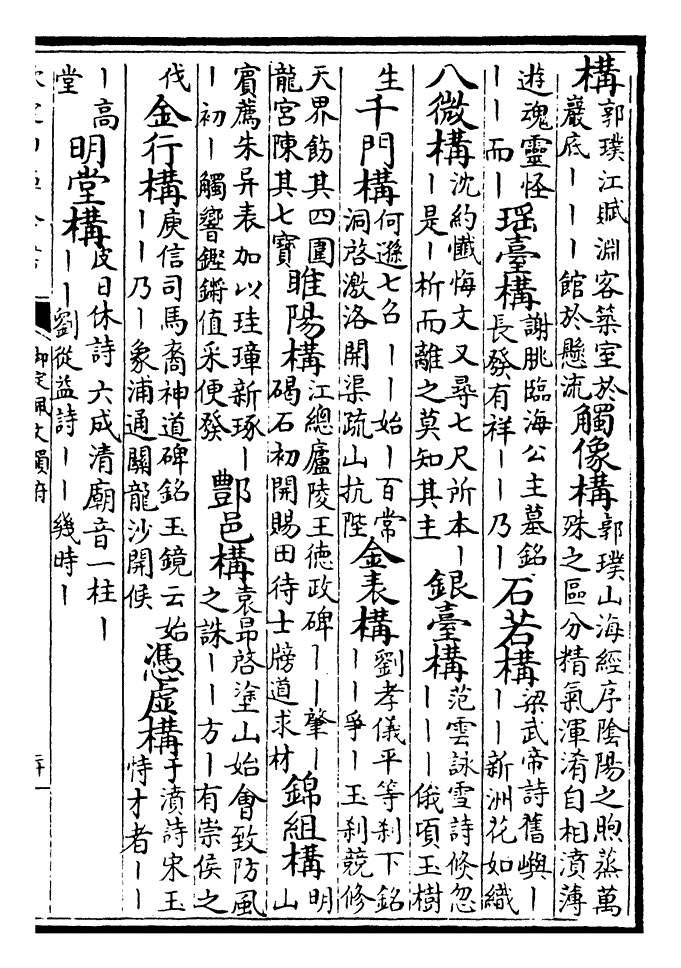 構郭璞江賦淵客築室於巖底丨丨丨館於懸流觸像構郭璞山海經序隂陽之煦蒸萬殊之區分精氣渾淆自相濆薄
遊魂靈怪丨丨而丨瑶臺構謝朓臨海公主墓銘長發有祥丨丨乃丨石若構梁武帝詩舊嶼丨丨丨新洲花如織
八微構沈約懺悔文又尋七尺所本丨丨是丨析而離之莫知其主銀臺構范雲詠雪詩倏忽丨丨丨俄頃玉樹
生千門構何遜七召丨丨始丨百常洞啓激洛開渠疏山抗陛金表構劉孝儀平等刹下銘丨丨爭丨玉刹競修
天界飭其四圍龍宮陳其七寶睢陽構江總廬陵王德政碑丨丨肇丨碣石初開賜田待士牓道求材錦組構明山
賔薦朱异表加以珪璋新琢丨丨初丨觸響鏗鏘值采便發酆邑構袁昂啓塗山始會致防風之誅丨丨方丨有崇侯之
伐金行構庾信司馬裔神道碑銘玉鏡云始丨丨乃丨象浦通關龍沙開候憑虛構于濆詩宋玉恃才者丨丨
丨高堂明堂構皮日休詩六成清廟音一柱丨丨丨劉從益詩丨丨幾時丨
御定佩文韻府